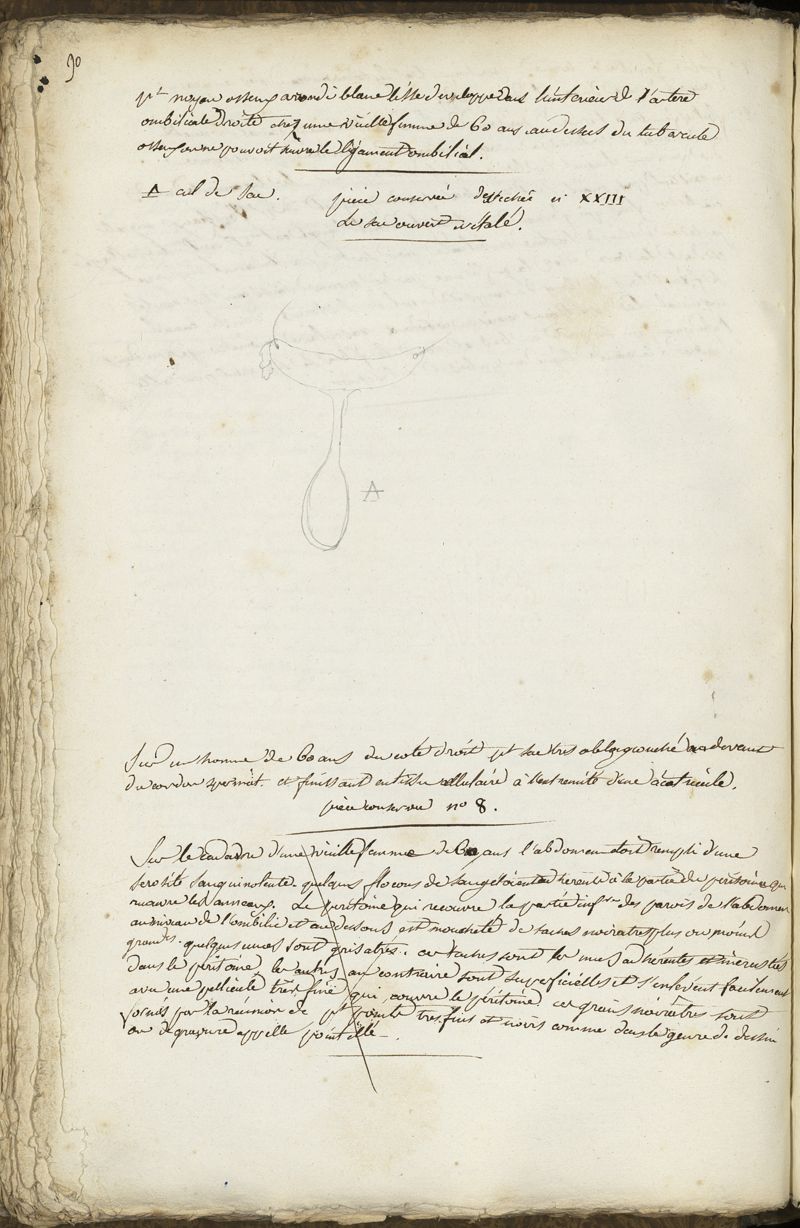 90
pt noyau osseux arondi blanc lisse developpé dans l'interieur de l'artere
ombilicale droite chez une vieille femme de 60 ans. au dessus du tubercule
osseux on ne pouvoit suivre le ligament ombilical.
A cul de sac. pièce conservée dessechée n XXIII
Le sac ouvert et étalé.
A
Sur un homme de 60 ans du coté droit pt sac tres oblong couché au devant
du cordon spermat. et finissant en tissu cellulaire à l'extremité d'une
pièce conservée no 8.
Sur le cadavre d'une vieille femme de 60 ans l'abdomen etoit rempli d'une
serosité sanguinolente. quelques flocons de sang étoient adherents à la partie du peritoine qui
recouvre les anneaux. Le peritoine qui recouvre la partie infre des parois de l'abdomen
au niveau de l'ombilic et au dessous est moucheté de taches noiratres plus ou moins
grandes. quelques unes sont grisatres. ces taches sont les unes adhérentes et incrustées
dans le péritoine, les autres au contraire sont superficielles et s'enlevent facilement
avec une pellicule très fine qui couvre le péritoine. ces grains noirâtres sont
formés par la réunion de pt points tres fins et noirs comme dans le genre de dessin
ou de gravure appellé pointillé.